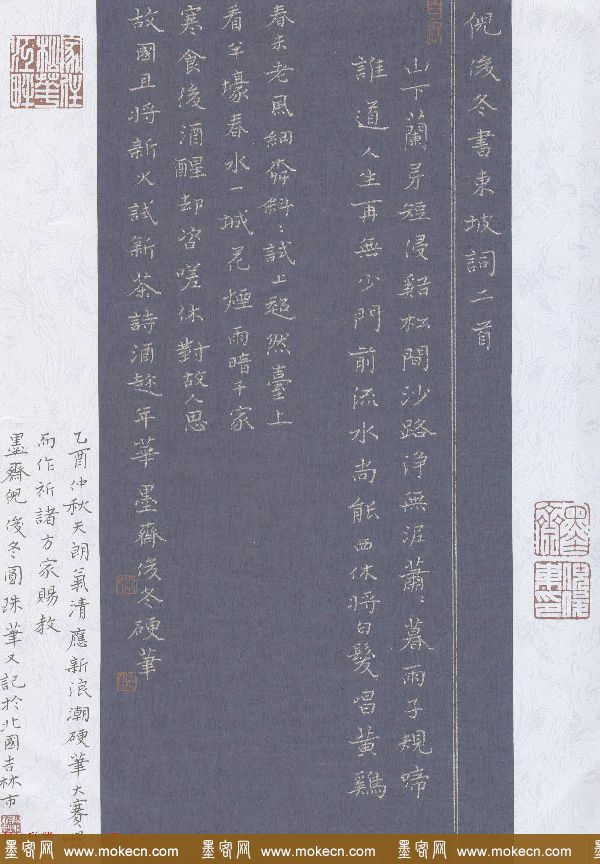 倪俊冬書東坡詞二首
山下蘭芽短侵谿松間沙路浄無泥蕭〻暮雨子規啼
誰道人生再無少門前流水尚能西休將白髮唱黃鷄
春未老風細柳斜〻試上超然臺上
看半壕春水一城花煙雨暗千家
寒食後酒醒却咨嗟休對故人思
故國且將新火試新茶詩酒趁年華墨齋俊冬硬筆
家住松華江畔
乙酉仲秋天朗氣清應新浪潮硬筆大賽
而作祈諸方家賜教
墨齋倪俊冬圓珠筆又記於北國吉林市
墨齋
墨客网 www.mokecn.com 墨客网 www.mokecn.com 墨客网 www.mokecn.com